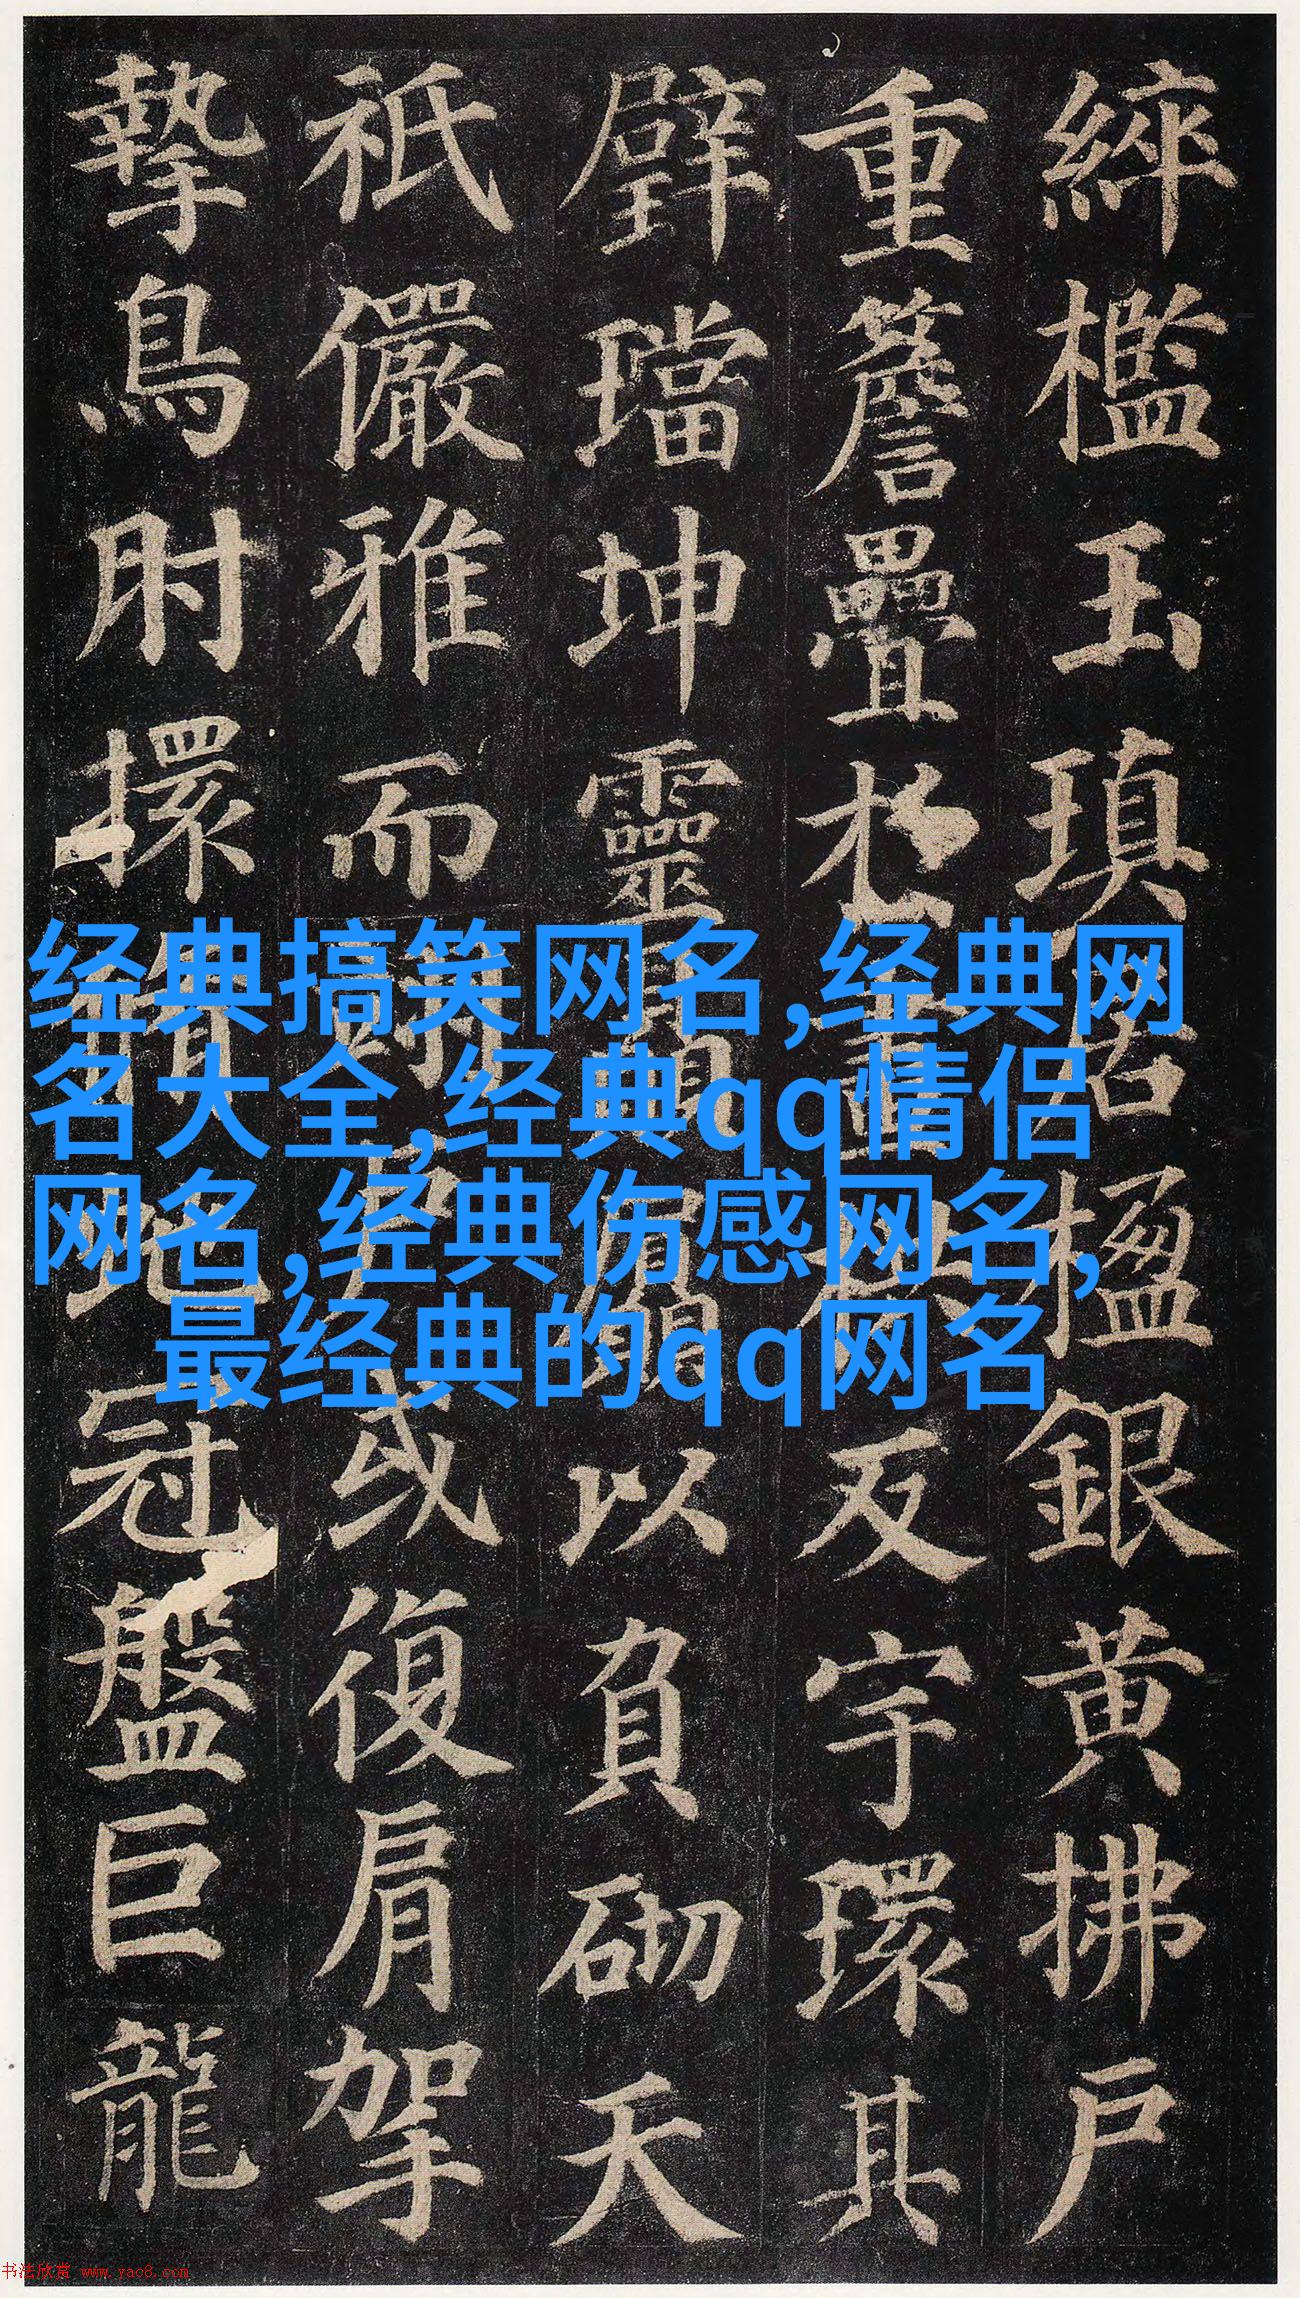 綷檻玉瑱居楹銀黄拂戶
重簷疊於畫栱反宇環其
璧璫坤靈贔屭以負砌天
祇儼雅而翊户或復肩挐
摯鳥肘擐脩虵冠盤巨龍
经典搞笑网名,经典网
名大全,经典qq情侣
网名,经典伤感网名,
最经典的qq网名
书法欣赏 www.yac8.com